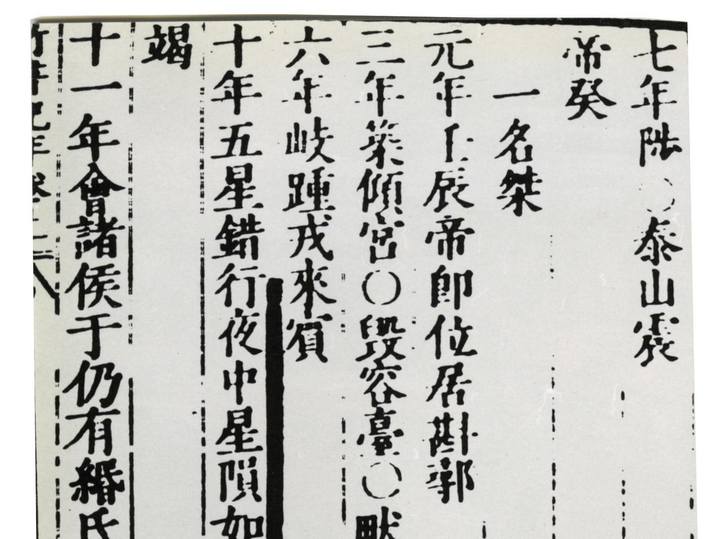 七年陟〇泰山震
帝癸
一名桀
元年壬辰帝卽位居斟鄩
三年築傾宮〇毀容臺〇畎
六年岐踵戎來賓
十年五星錯行夜中星隕如
竭
十一年會諸侯于仍有緡氏
竹書紀年卷上